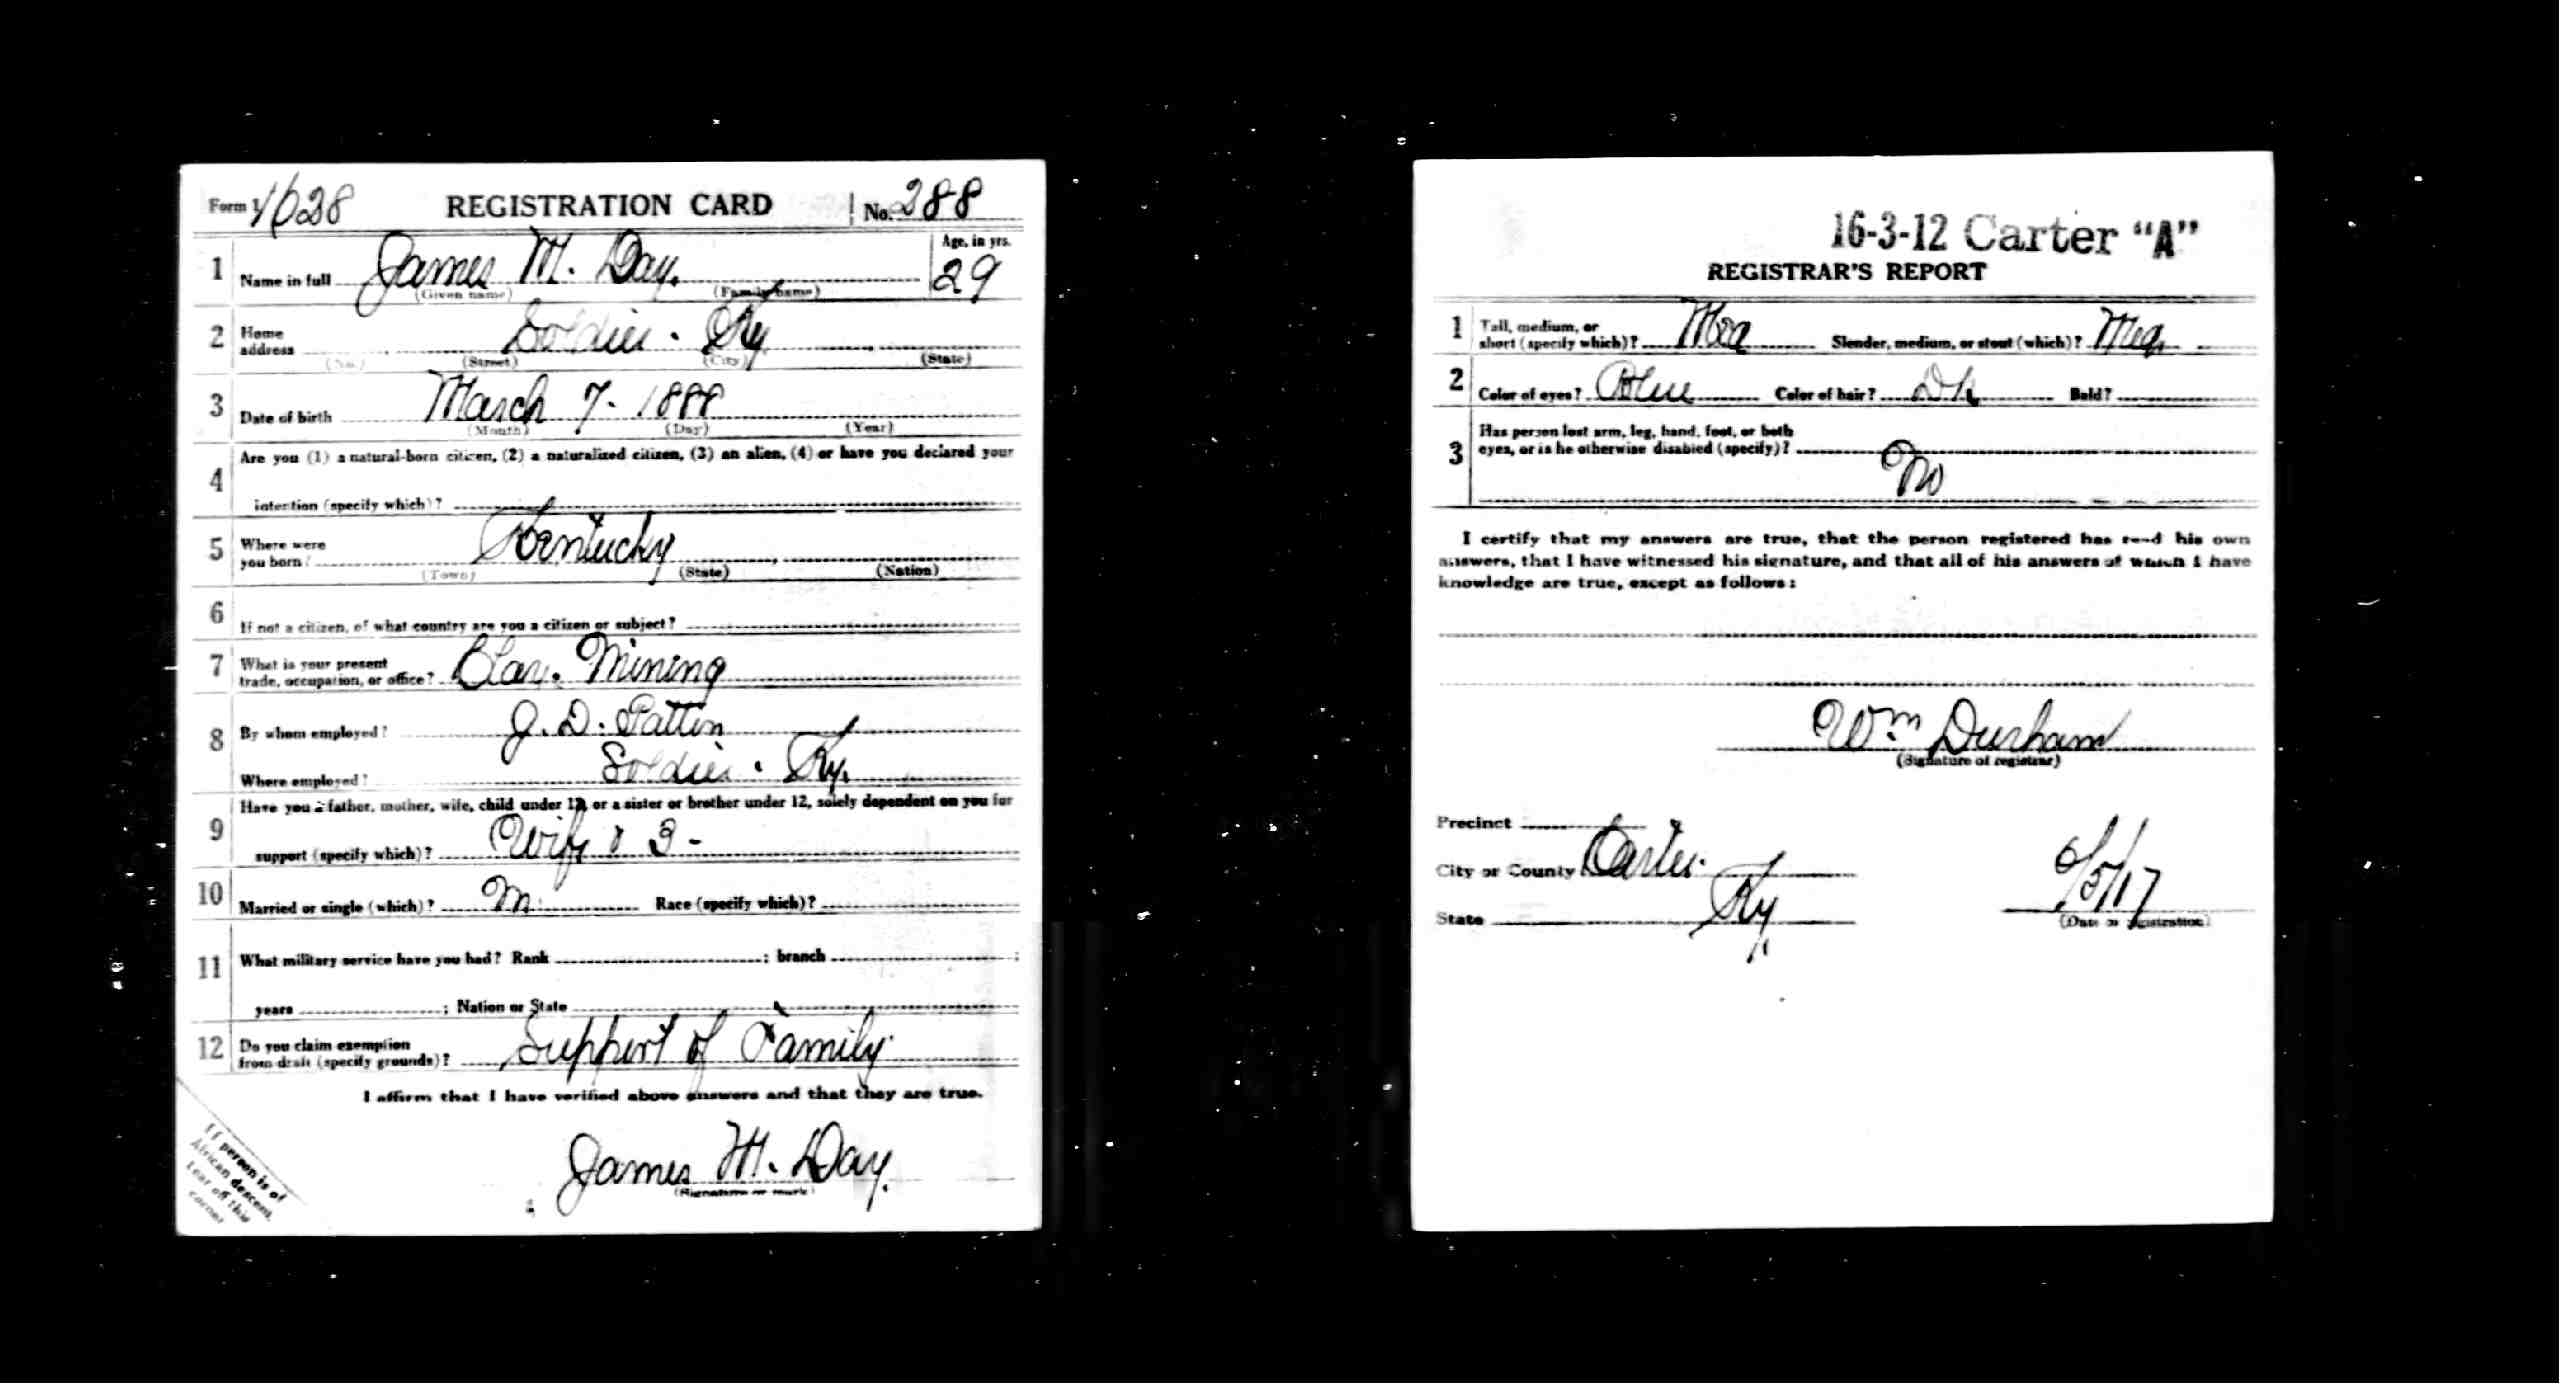 Form 1 1628 REGISTRATION CARD No. 288
1 Name in full James M. Day. Age, in yrs. 29
(Given name) (Family name)
2 Home address Soldier. Ky
(No.) (Street) (City) (State)
3 Date of birth March 7- 1888
(Month) (Day) (Year)
4 Are you (1) a natural-born citizen, (2) a naturalized citizen, (3) an alien, (4) or have you declared your
intention (specify which)?
5 Where were you born? Kentucky
(Town) (State) (Nation)
6 If not a citizen, of what country are you a citizen or subject?
7 What is your present trade, occupation, or office? Clay. Mining
8 By whom employed? J. D. Patton
Where employed? Soldier. Ky.
9 Have you a father, mother, wife, child under 12, or a sister or brother under 12, solely dependent on you for
support (specify which)? Wife & 3 -
10 Married or single (which)? M. Race (specify which)?
11 What military service have you had? Rank ; branch ;
years ; Nation or State
12 Do you claim exemption from draft (specify grounds)? Support of Family
I affirm that I have verified above answers and that they are true.
James M. Day.
(Signature or mark)
If person is of
African descent,
tear off this
corner
16-3-12 Carter "A"
REGISTRAR'S REPORT
1 Tall, medium, or short (specify which)? Med Slender, medium, or stout (which)? Med.
2 Color of eyes? Blue Color of hair? Dk Bald?
3 Has person lost arm, leg, hand, foot, or both
eyes, or is he otherwise disabled (specify)?
No
I certify that my answers are true, that the person registered has read his own
answers, that I have witnessed his signature, and that all of his answers of which I have
knowledge are true, except as follows:
Wm Durham
(Signature of registrar)
Precinct
City or County Carter.
State Ky. 6/5/17
(Date of registration)